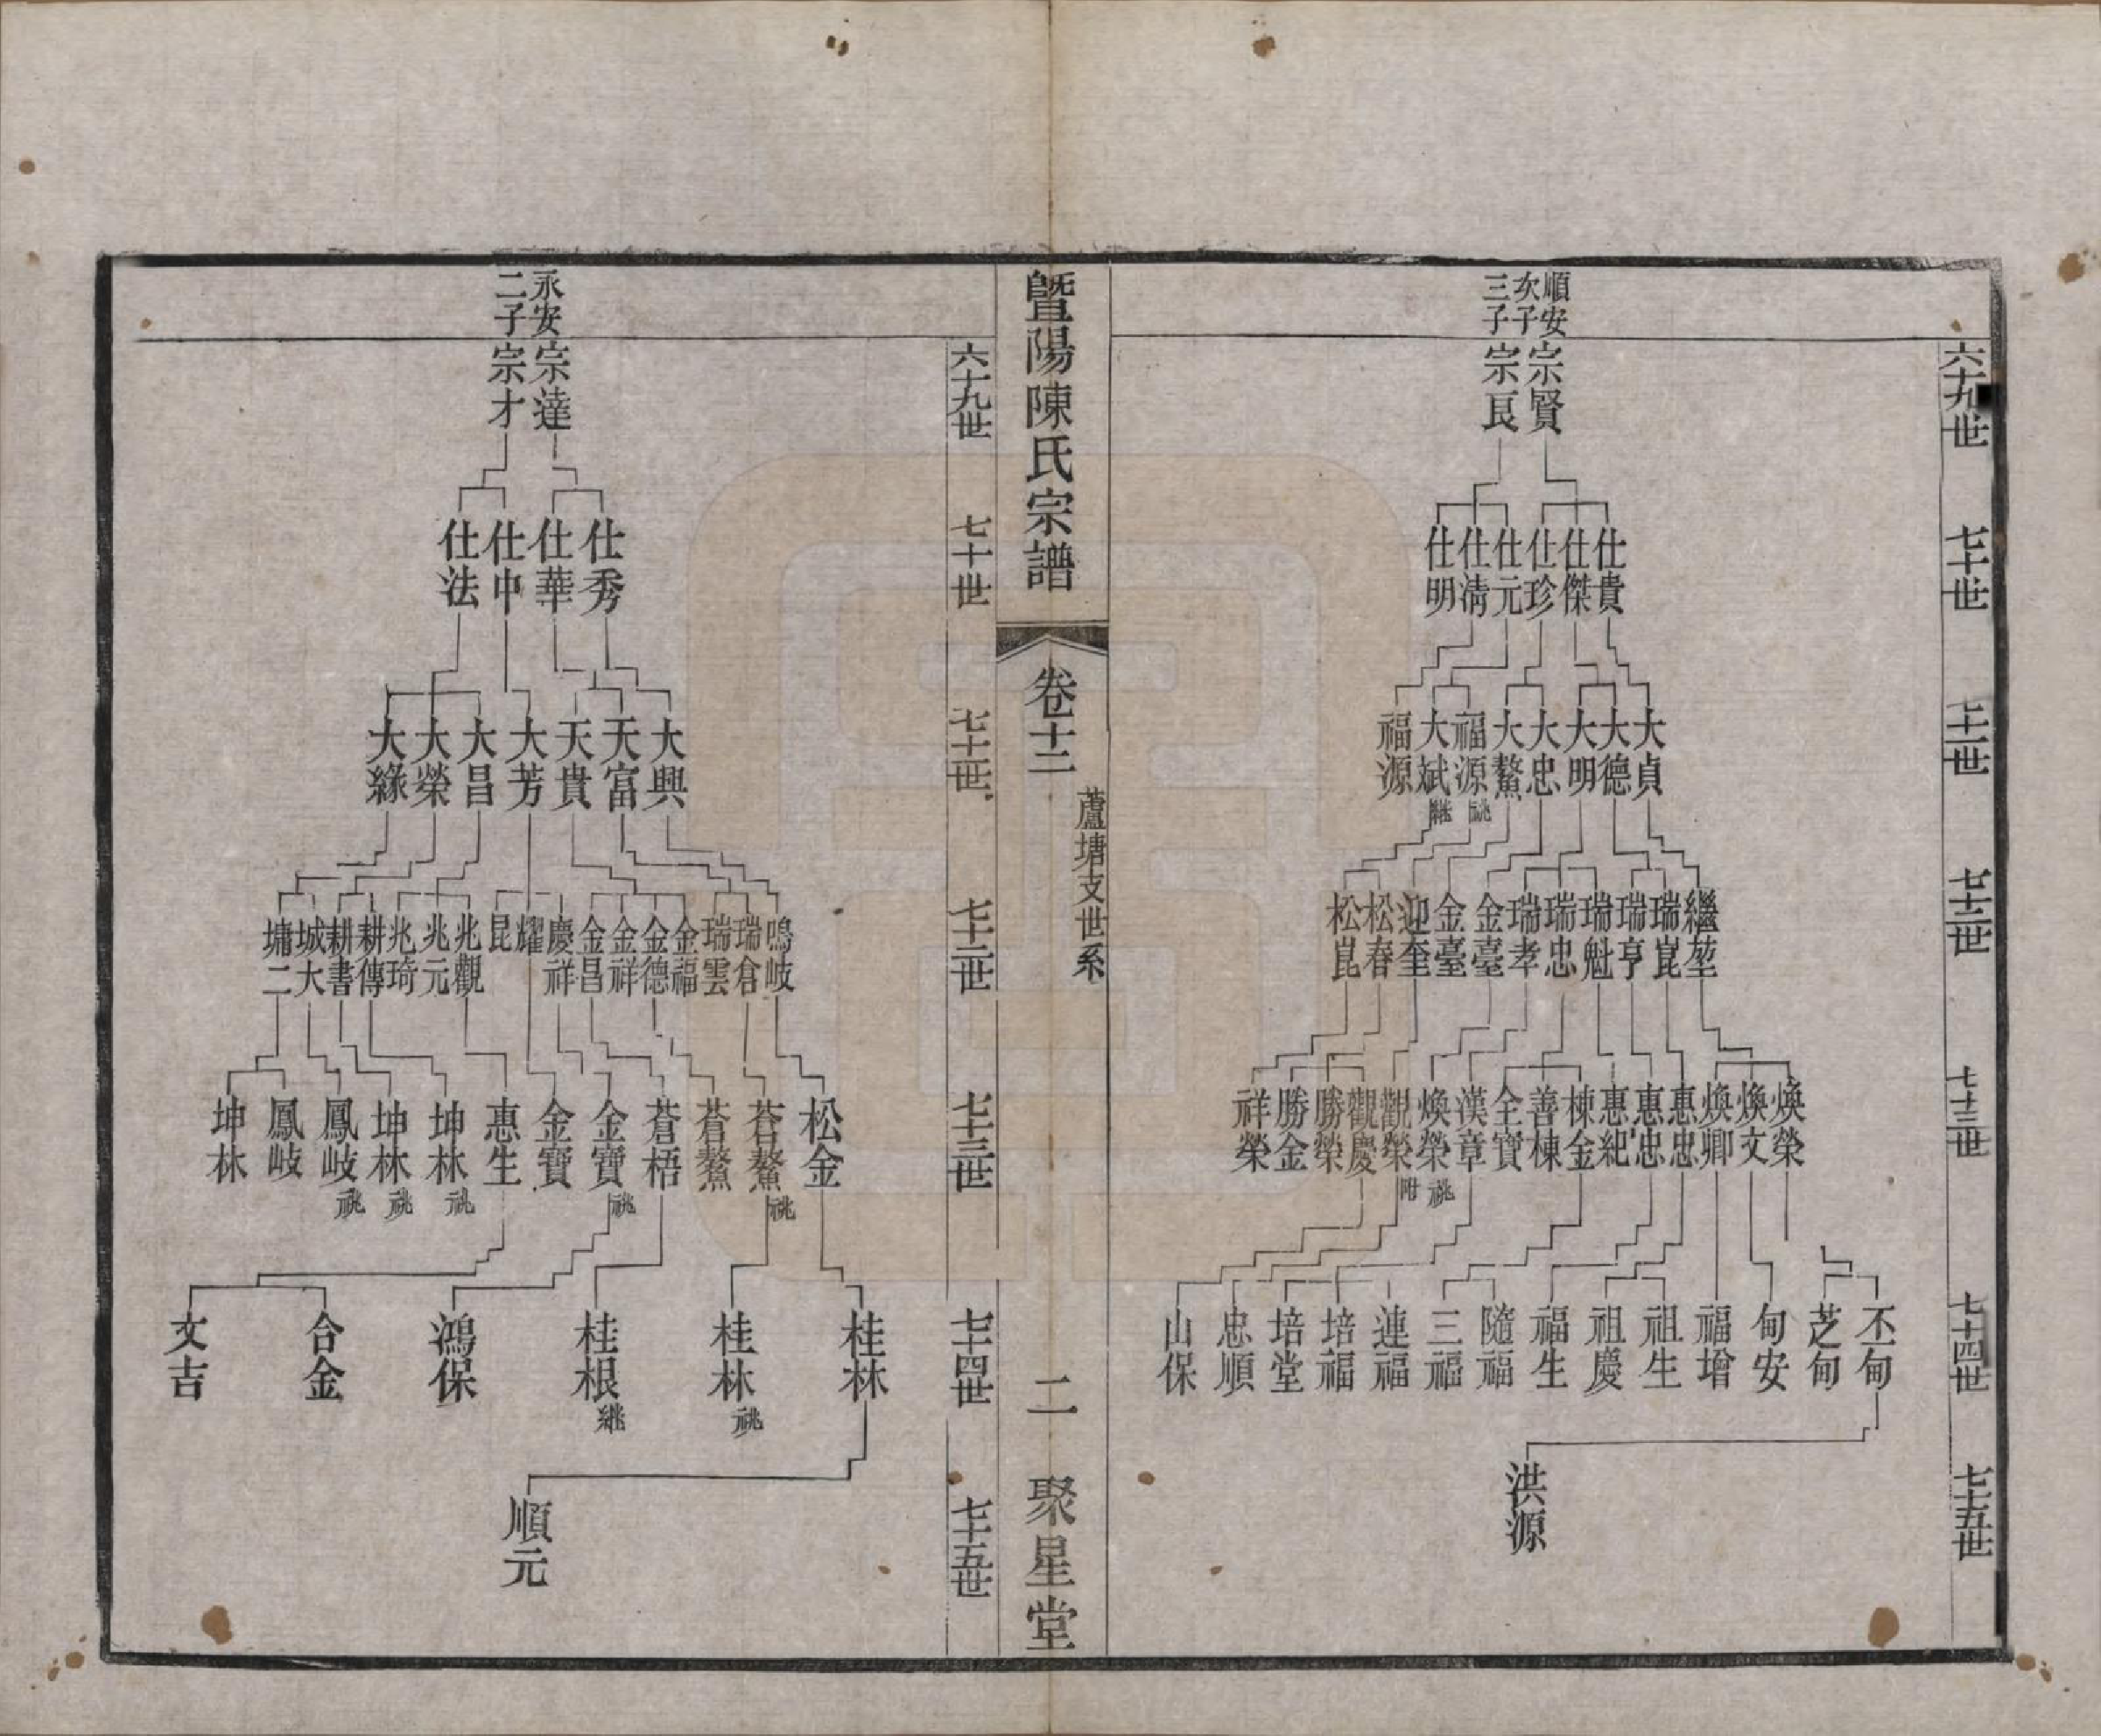 六十九世
七十世
七十一世
七十二世
七十三世
七十四世
七十五世
順安
次子
三子
宗賢
宗良
仕貴
仕傑
仕珍
仕元
仕清
仕明
大貞
大德
大明
大忠
大鰲
福源祧
大斌繼
福源
繼堃
瑞崑
瑞亨
瑞魁
瑞忠
瑞孝
金臺
金臺
迎奎
松春
松崑
煥榮
煥文
煥卿
惠忠
惠忠
惠紀
棟金
善棟
全寶
漢章
煥榮祧
觀榮附
觀慶
勝榮
勝金
祥榮
丕甸
芝甸
甸安
福增
祖生
祖慶
福生
隨福
三福
連福
培福
培堂
忠順
山保
洪源
暨陽陳氏宗譜
卷十二
蘆塘支世系
二
聚星堂
六十九世
七十世
七十一世
七十二世
七十三世
七十四世
七十五世
永安
二子
宗達
宗才
仕秀
仕華
仕中
仕法
大興
天富
天貴
大芳
大昌
大榮
大緣
鳴岐
瑞倉
瑞雲
金福
金德
金祥
金昌
慶祥
耀
昆
兆觀
兆元
兆琦
耕傳
耕書
城大
墉二
松金
蒼鰲祧
蒼鰲
蒼梧
金寶祧
金寶
惠生
坤林祧
坤林祧
鳳岐祧
鳳岐
坤林
桂林
桂林祧
桂根繼
鴻保
合金
文吉
順元